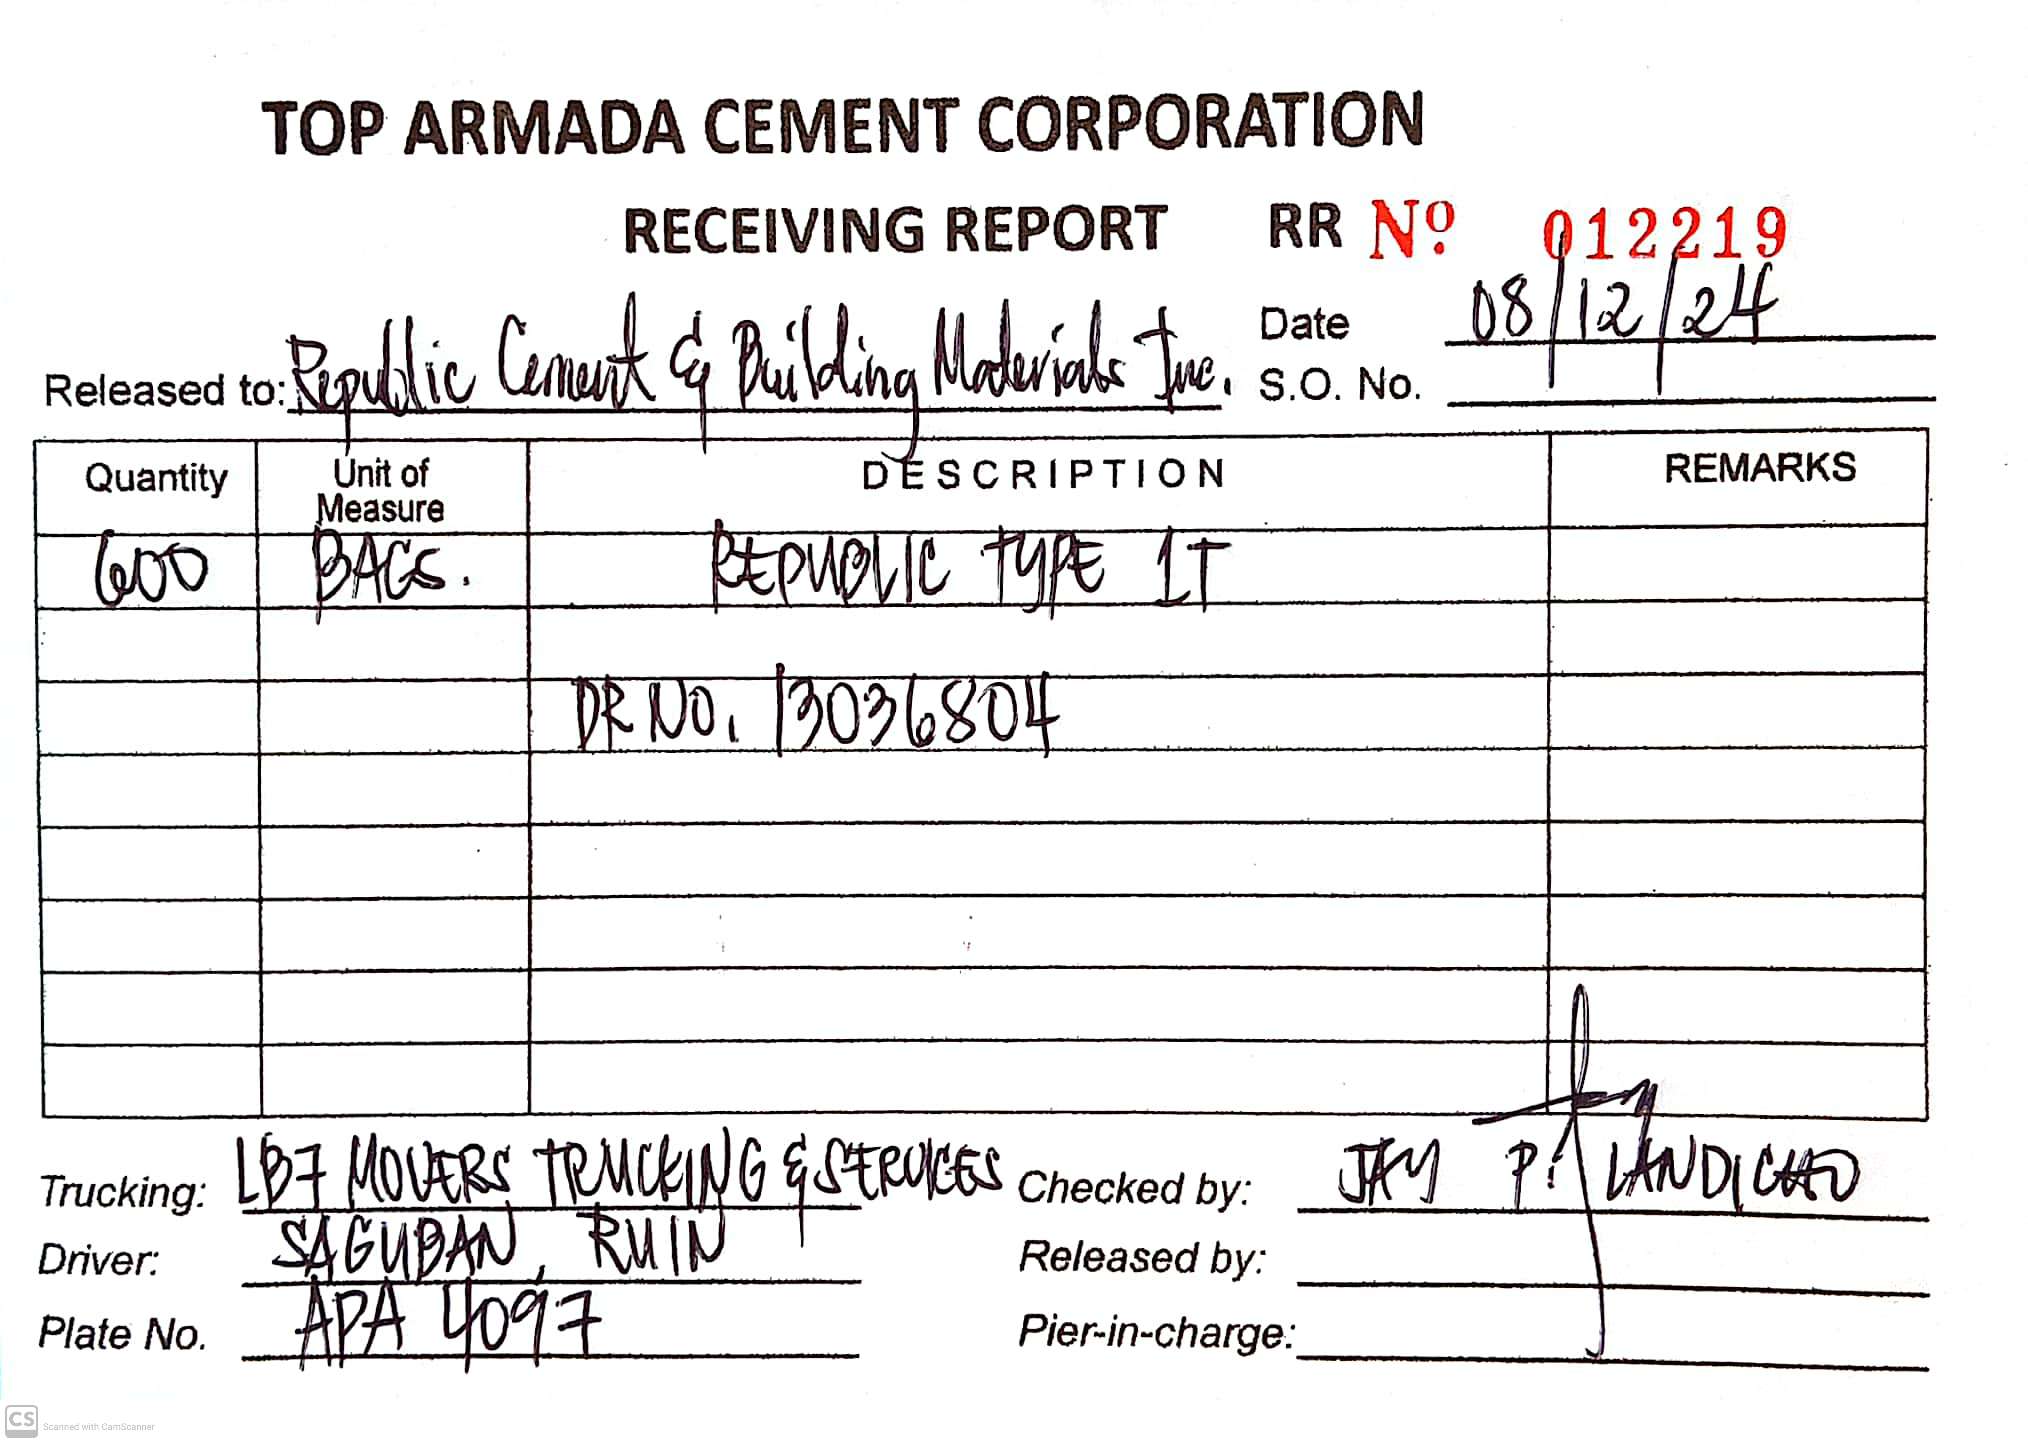 TOP ARMADA CEMENT CORPORATION
RECEIVING REPORT RR Nº 012219
Date 08/12/24
Released to: Republic Cement & Building Materials Inc. S.O. No.
Quantity Unit of Measure DESCRIPTION REMARKS
600 BAGS. REPUBLIC TYPE 1T
DR NO. 13036804
Trucking: LB7 MOVERS TRUCKING & SERVICES Checked by: JAY P. LANDICHO
Driver: SAGUBAN, RUIN Released by:
Plate No. APA 4097 Pier-in-charge:
CS Scanned with CamScanner